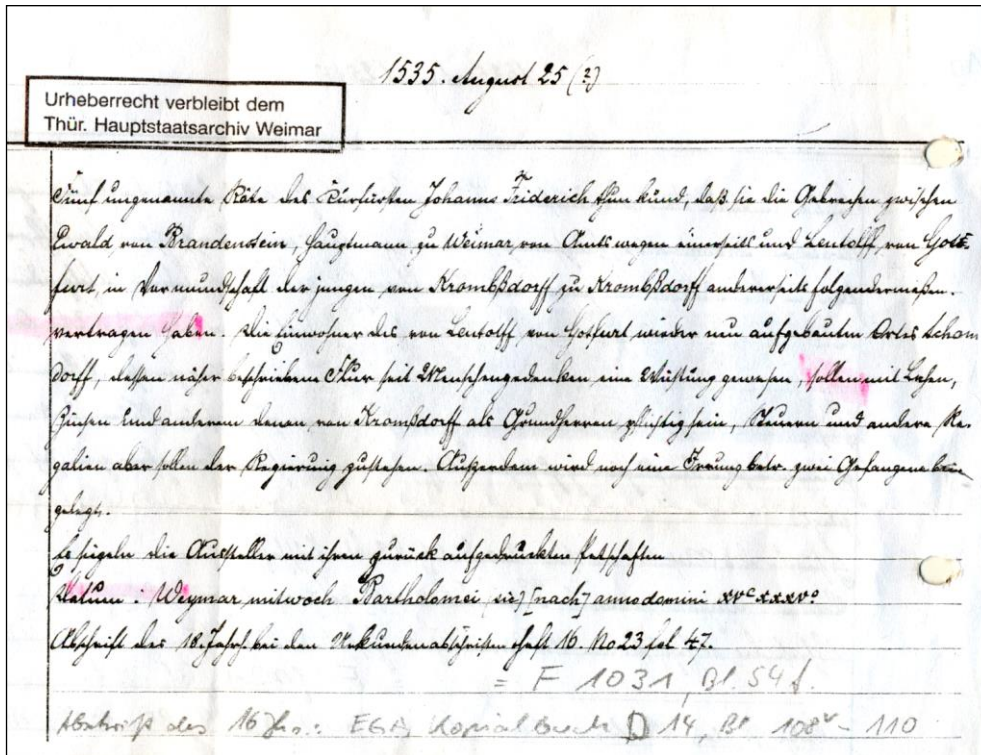 1535. August 25 (?)
Urheberrecht verbleibt dem
Thür. Hauptstaatsarchiv Weimar
Fünf ungenannte Räte des Kurfürsten Johanns Friderich thun kund, daß sie die Gebrechen zwischen
Ewald von Brandenstein, Hauptmann zu Weimar, von Amts wegen einerseits und Lentolff von Hott-
fert, in Vormundschaft der jungen von Krombßdorff zu Krombßdorff andererseits folgendermaßen
vertragen haben. Die Einwohner des von Lentolff von Hotfurt wieder neu aufgebauten Ortes Schom
dorff, dessen näher beschriebene Flur seit Menschengedenken eine Wüstung gewesen, sollen mit Lehen,
Zinsen und anderem denen von Kromßdorff als Grundherren pflichtig sein, Steuern und andere Re-
galien aber sollen der Regierung zustehen. Außerdem wird noch eine Irrung betr. zwei Gefangene bei-
gelegt.
Es siegeln die Aussteller mit ihren zurück aufgedruckten Petschaften
Datum. Weymar mitwoch Bartholomei [nach] anno domini xvᶜ xxxvᵒ
Abschrift des 18. Jahrh. bei den Urkundenabschriften Heft 16. No 23 fol 47.
= F 1031, Bl. 54 f.
Abschrift des 16. Jhs.: EGA, Kopialbuch D 14, Bl. 108ᵛ - 110